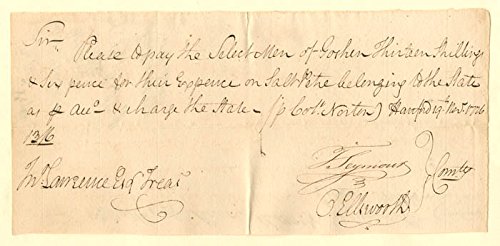 Sir
Please to pay the Select Men of Goshen Thirteen Shillings
& Six pence for their Expence on Salt Petre belonging to the State
as pr Accot & charge the State - (p Colo. Norton) Hartford 19th Novr 1776
13/6
Jno Lawrence Esqr Treasr
T. Seymour
O Ellsworth
} Comtee